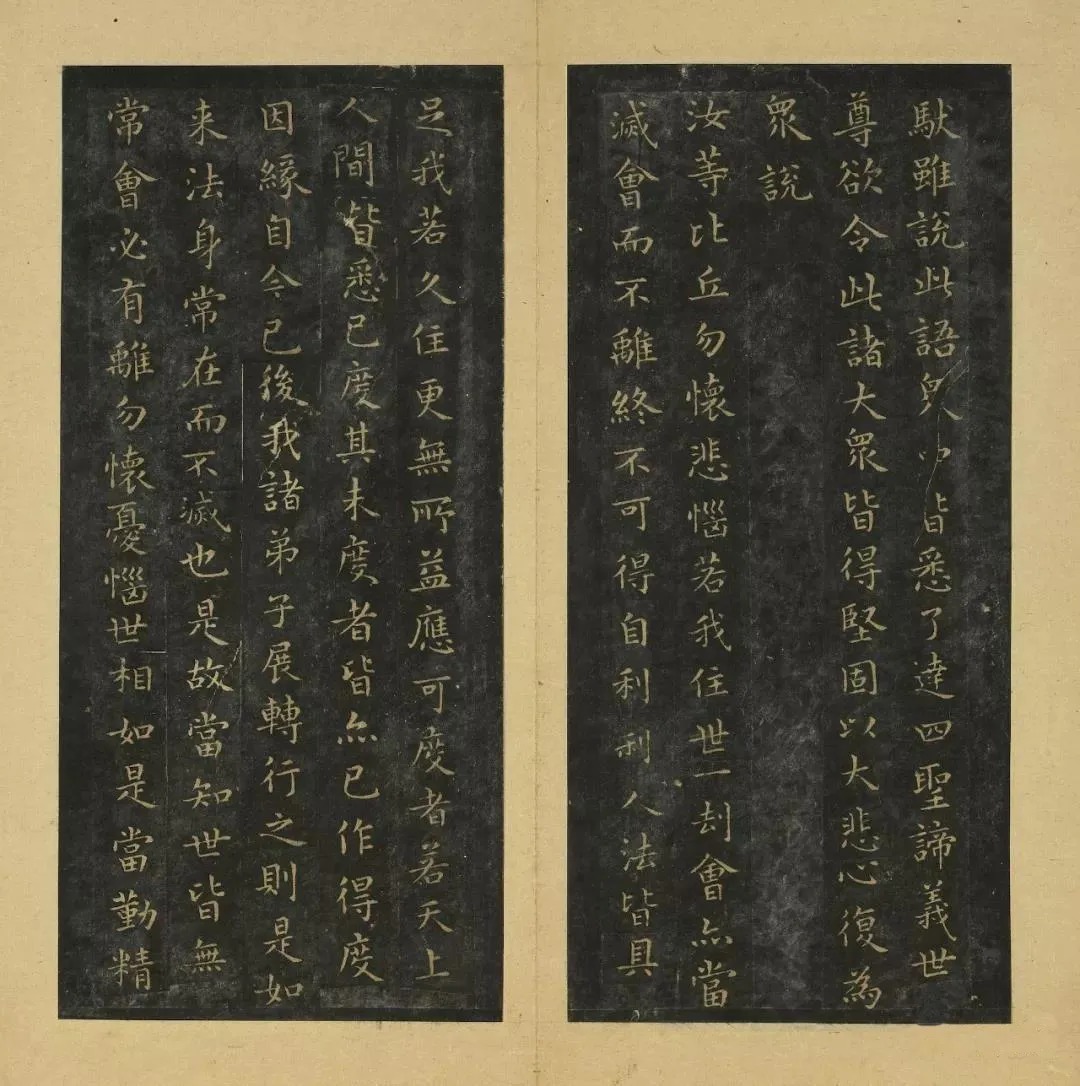 馱雖說此語眾中皆悉了達四聖諦義世
尊欲令此諸大眾皆得堅固以大悲心復為
眾說
汝等比丘勿懷悲惱若我住世一刼會亦當
滅會而不離終不可得自利利人法皆具
足我若久住更無所益應可度者若天上
人間皆悉已度其未度者皆亦已作得度
因緣自今已後我諸弟子展轉行之則是如
来法身常在而不滅也是故當知世皆無
常會必有離勿懷憂惱世相如是當勤精